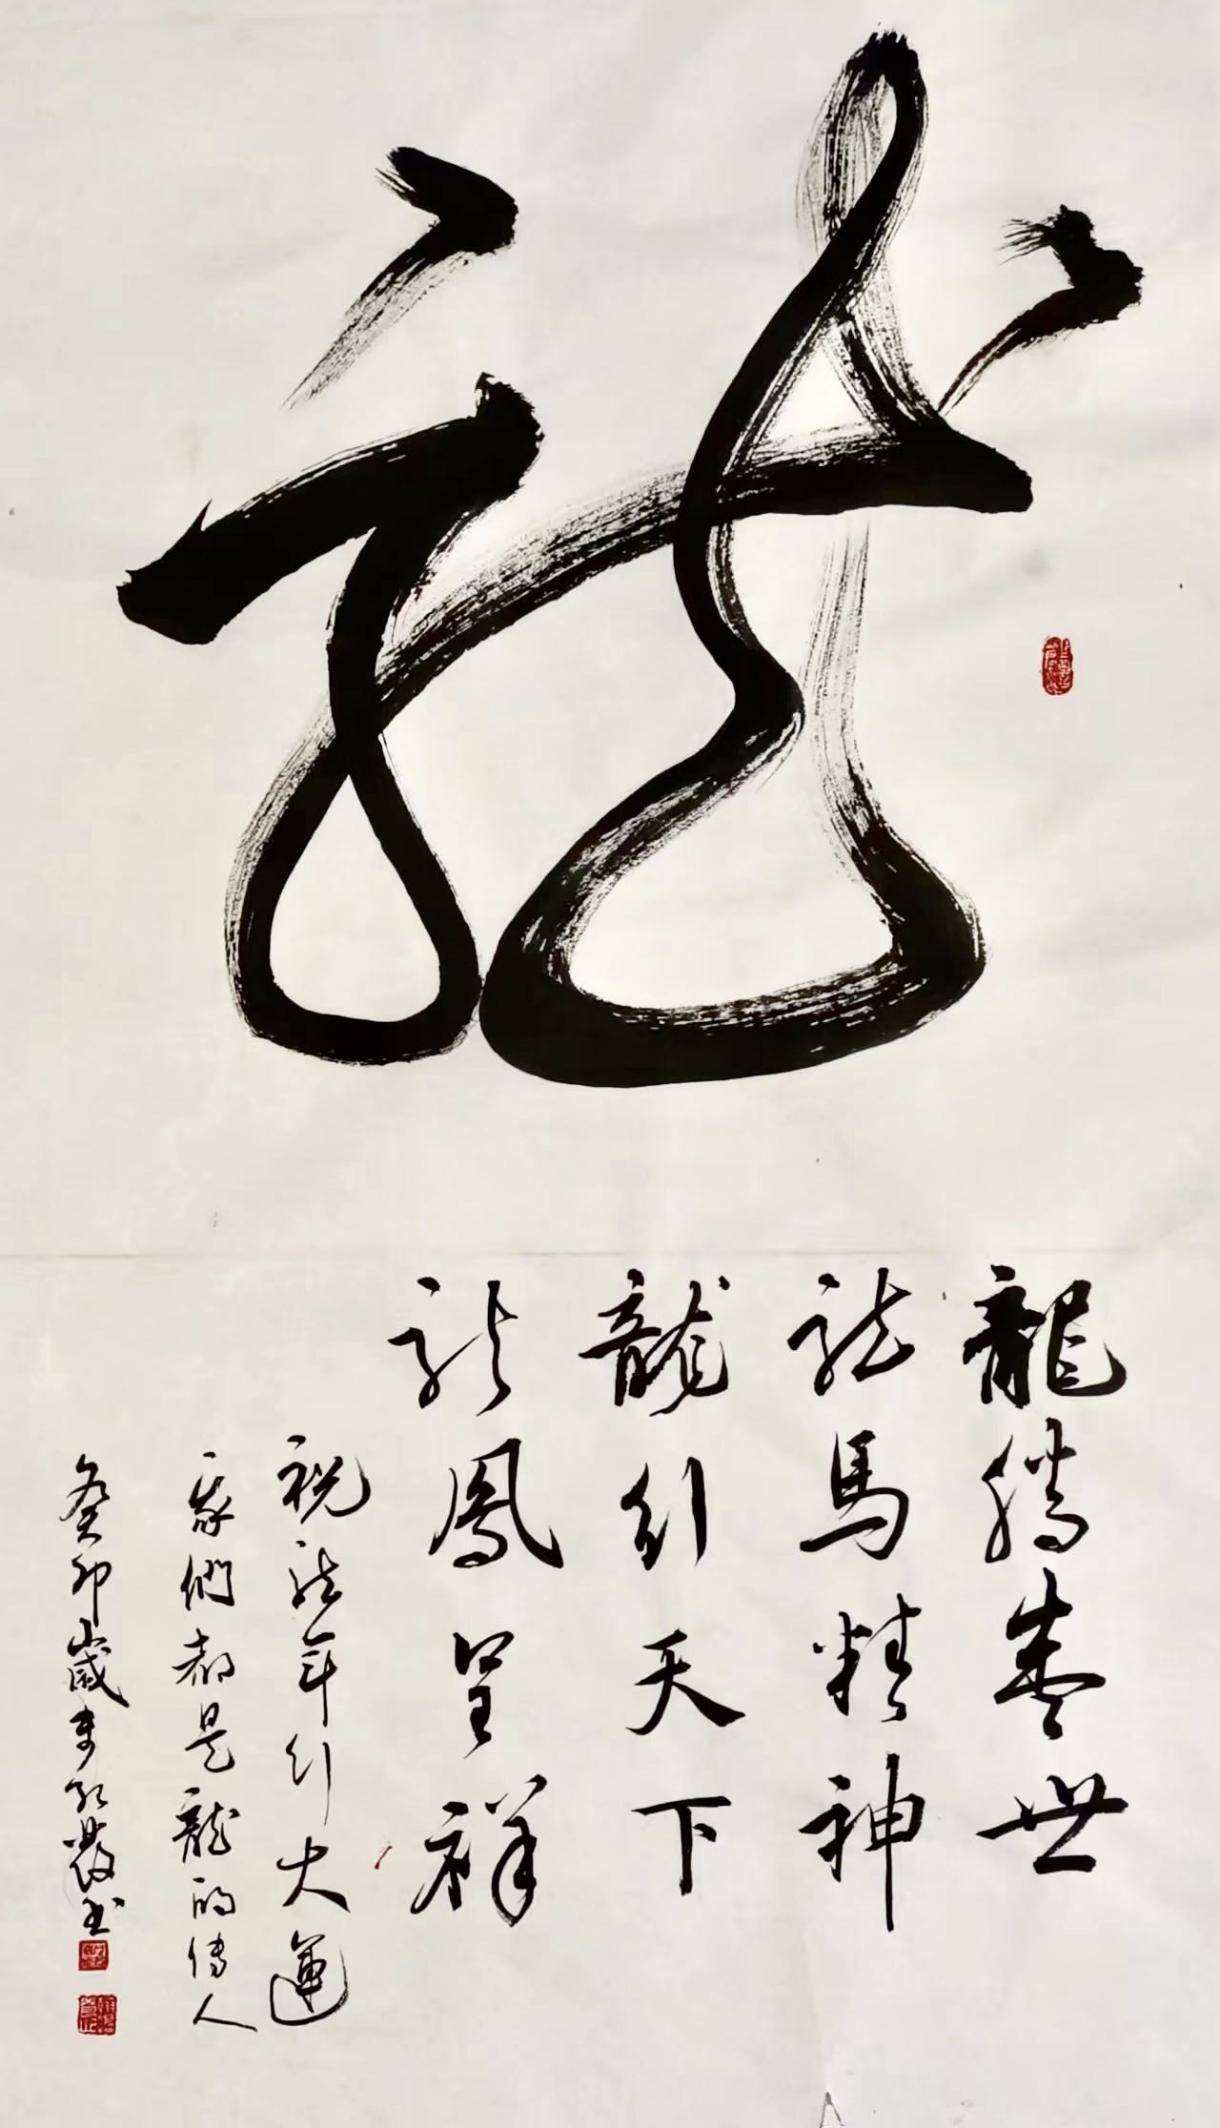 龍
龍騰盛世
龍馬精神
龍行天下
龍鳳呈祥
祝龍年行大運
我們都是龍的傳人
癸卯歲李紅霞书